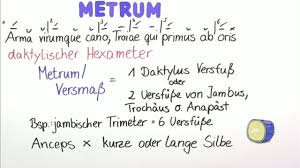 METRUM
Arma virumque cano, Troiae qui primus ab oris
daktylischer Hexameter
Metrum/ Versmaß = 1 Daktylus Versfuß
oder
2 Versfüße von Jambus,
Trochäus o. Anapäst
Bsp: jambischer Trimeter = 6 Versfüße
Anceps × kurze oder lange Silbe